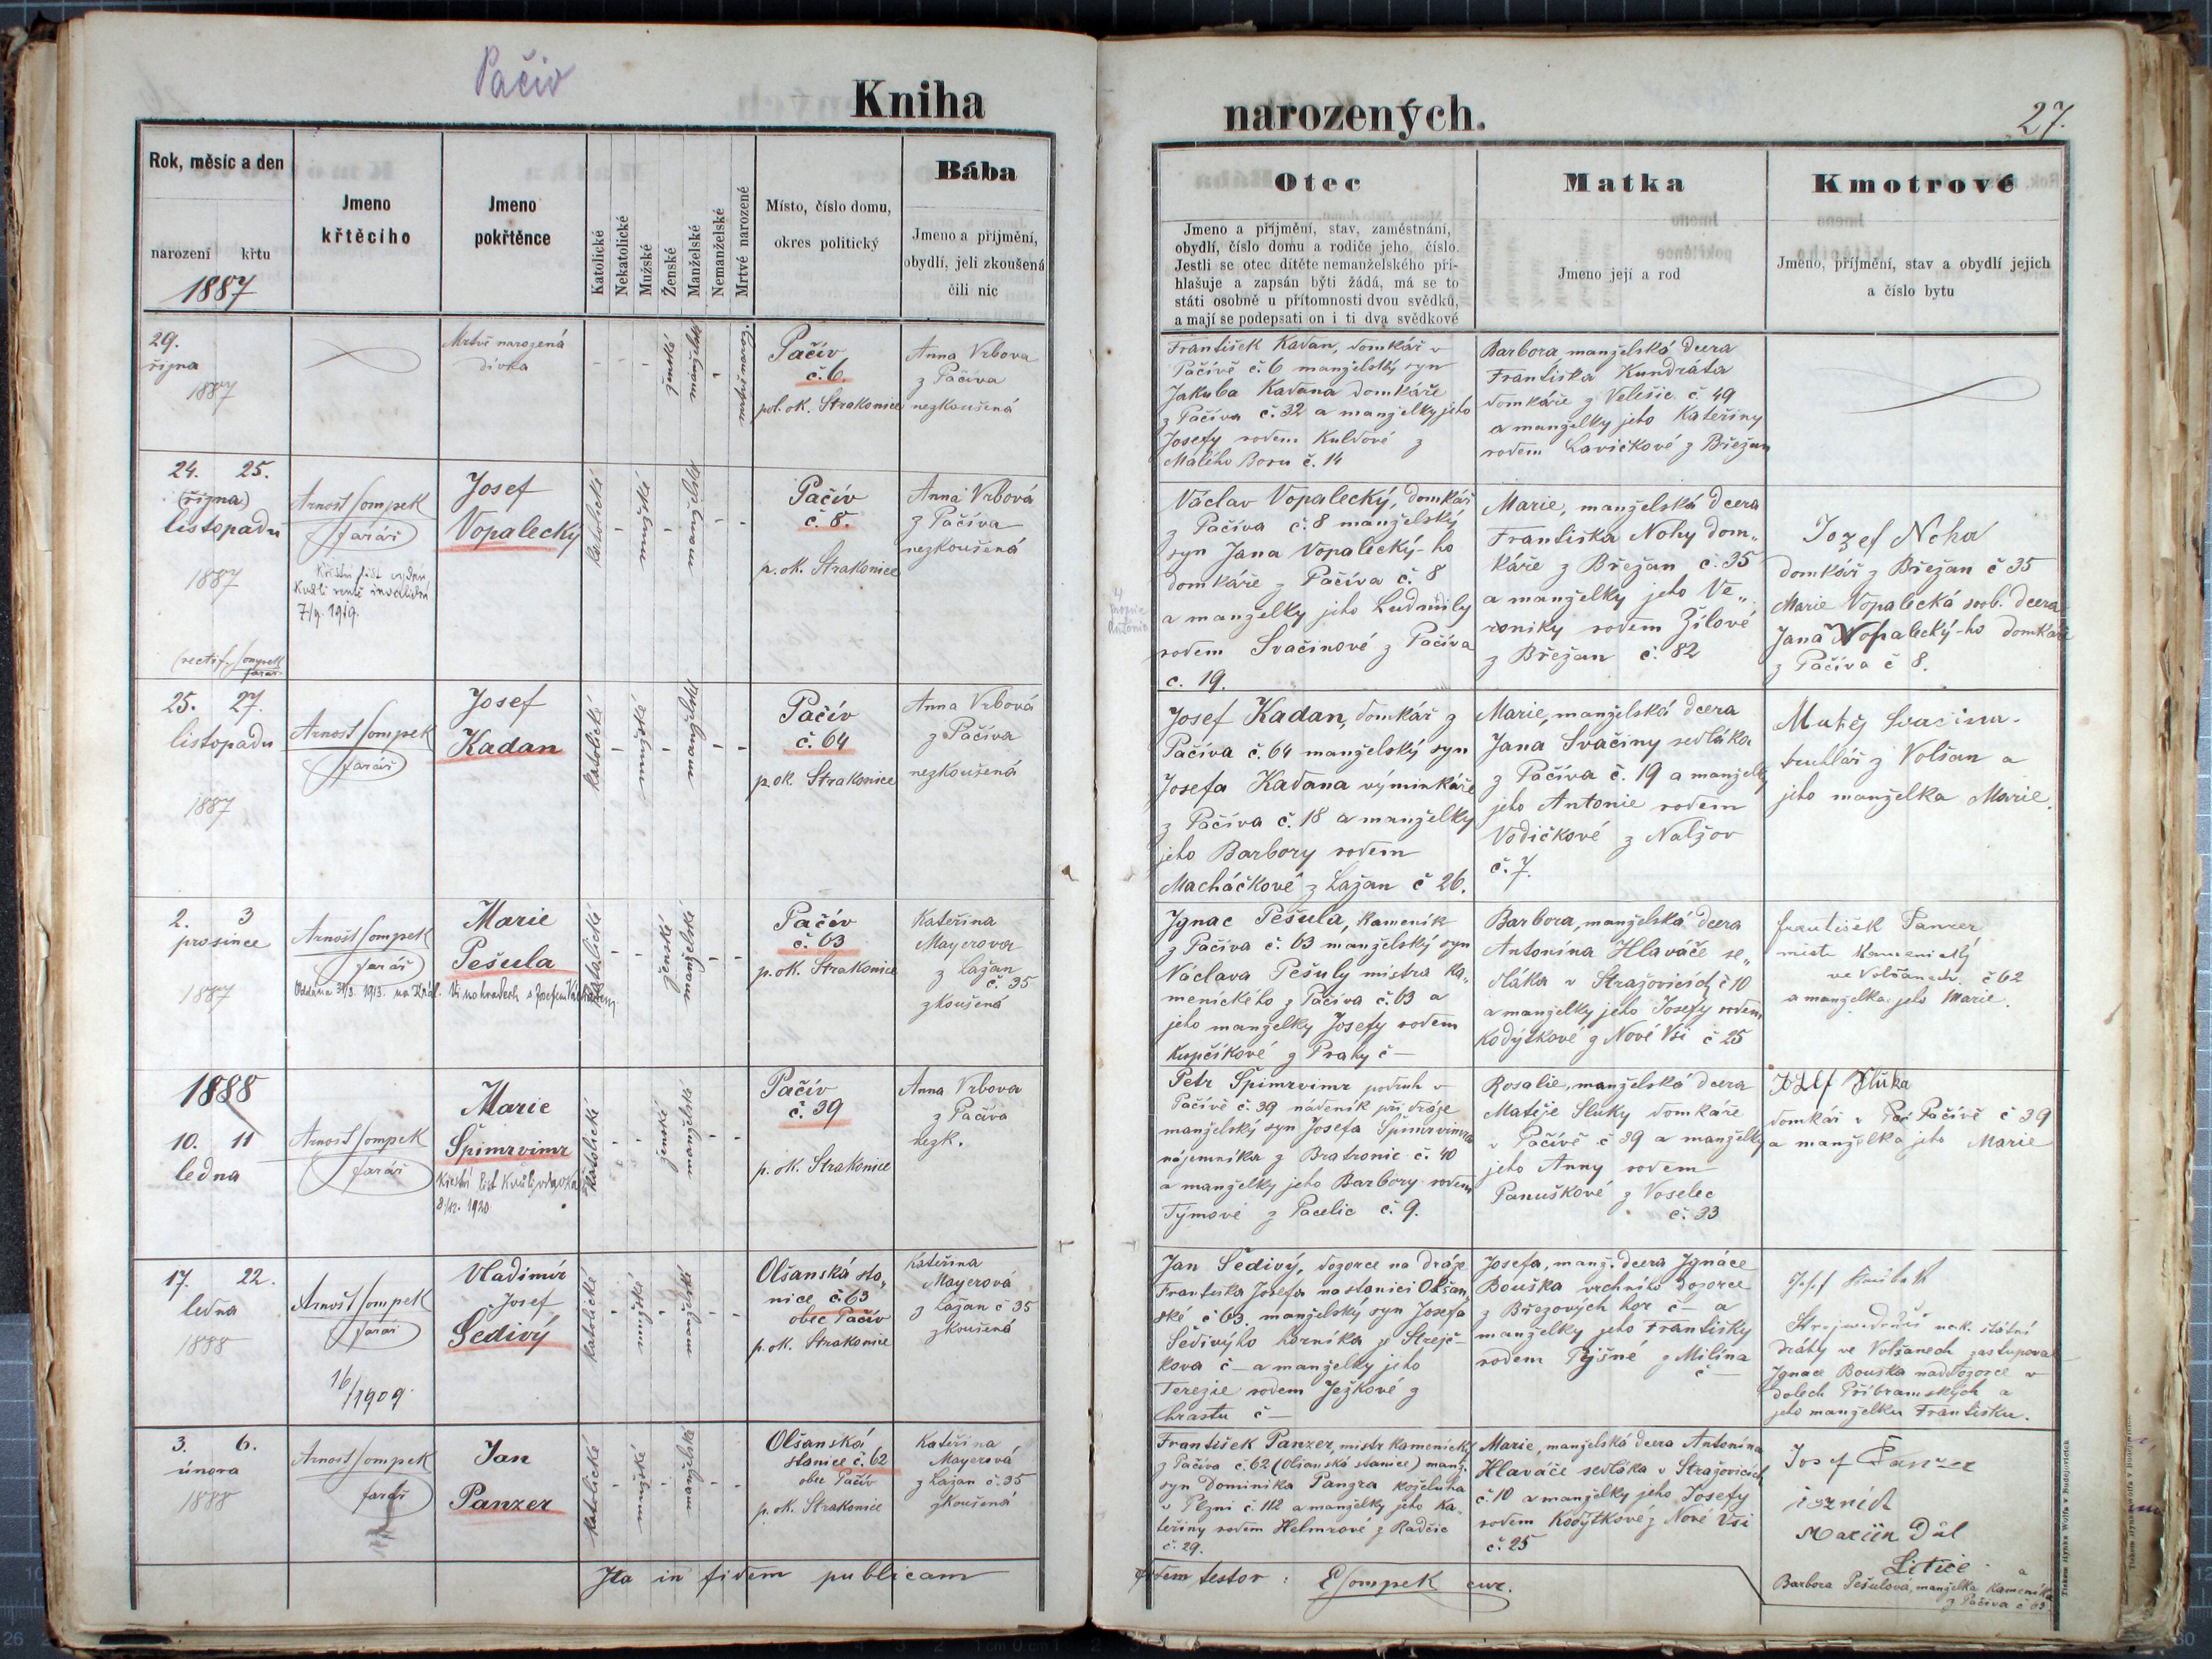 Pačiv
Kniha
narozených.
27.
Rok, měsíc a den
narození křtu
1887
Jmeno
křtěcího
Jmeno
pokřtěnce
Katolické
Nekatolické
Mužské
Ženské
Manželské
Nemanželské
Mrtvé narozené
Místo, číslo domu,
okres politický
Bába
Jmeno a příjmění,
obydlí, jeli zkoušená
čili nic
Otec
Jmeno a příjmění, stav, zaměstnání,
obydlí, číslo domu a rodiče jeho, číslo.
Jestli se otec dítěte nemanželského při-
hlašuje a zapsán býti žádá, má se to
státi osobně u přítomnosti dvou svědků,
a mají se podepsati on i ti dva svědkové
Matka
Jmeno její a rod
Kmotrové
Jmeno, příjmění, stav a obydlí jejich
a číslo bytu
29.
října
1887
Mrtvě narozená
dívka
ženské
manželské
mrtvě naroz.
Pačív
č. 6.
pol. ok. Strakonice
Anna Vrbova
z Pačiva
nezkoušená
František Kadan, domkář v
Pačívě č. 6 manželský syn
Jakuba Kadana domkáře
z Pačíva č. 32 a manželky jeho
Josefy rodem Kuldové z
Malého Boru č. 14
Barbora manželská dcera
Františka Kundráta
domkáře z Velešic č. 49
a manželky jeho Kateřiny
rodem Lavičkové z Břežan
24. 25.
(října)
listopadu
1887
(rectif. Sompek
farář
Arnošt Sompek
farář
Křestní list vydán
kvůli rentě invalidní
7/9. 1919.
Josef
Vopalecký
katolické
mužské
manželské
Pačív
č. 8.
p. ok. Strakonice
Anna Vrbová
z Pačíva
nezkoušená
Václav Vopalecký, domkář
z Pačíva č. 8 manželský
syn Jana Vopalecký-ho
domkáře z Pačíva č. 8
a manželky jeho Ludmily
rodem Svačinové z Pačíva
č. 19.
Marie, manželská dcera
Františka Nohy dom„
káře z Břežan č. 35
a manželky jeho Ve„
roniky rodem Žílové
z Břežan č. 82
Jozef Noha
domkář z Břežan č 35
Marie Vopalecká svob. dcera
Jana Vopalecký-ho domkáře
z Pačíva č 8.
25. 27.
listopadu
1887
Arnošt Sompek
farář
Josef
Kadan
katolické
mužské
manželské
Pačív
č. 64
p. ok. Strakonice
Anna Vrbová
z Pačíva
nezkoušená
Josef Kadan, domkář z
Pačíva č. 64 manželský syn
Josefa Kadana výminkáře
z Pačíva č. 18 a manželky
jeho Barbory rodem
Macháčkové z Lažan č 26.
Marie, manželská dcera
Jana Svačiny sedláka
z Pačíva č. 19 a manželky
jeho Antonie rodem
Vodičkové z Nalžov
č. 7.
Matěj Svačina
truhlář z Volšan a
jeho manželka Marie.
2. 3
prosince
1887
Arnošt Sompek
farář
Oddána 31/3. 1913. na Král. Vinohradech s Josefem
Marie
Pešula
katolické
ženské
manželské
Pačív
č. 63
p. ok. Strakonice
Kateřina
Mayerova
z Lažan
č. 35
zkoušená
Jgnac Pešula, kameník
z Pačíva č. 63 manželský syn
Václava Pešuly mistra ka„
menického z Pačíva č. 63 a
jeho manželky Josefy rodem
Kupčíkové z Prahy č —
Barbora, manželská dcera
Antonína Hlaváče se„
dláka v Stražovicích č 10
a manželky jeho Josefy rodem
Kodýtkové z Nové Vsi č 25
František Panzer
mistr kamenický
ve Volšanech č 62
a manželka jeho Marie.
1888
10. 11
ledna
Arnošt Sompek
farář
Marie
Špimrvimr
Křestní list
8/12. 1920
katolické
ženské
manželské
Pačív
č. 39
p. ok. Strakonice
Anna Vrbova
z Pačíva
nezk.
Petr Špimrvimr podruh v
Pačívě č. 39 nádeník při dráze
manželský syn Josefa Špimrvimra
nájemníka z Bratronic č. 40
a manželky jeho Barbory rodem
Týmové z Pacelic č. 9.
Rosalie, manželská dcera
Matěje Sluky domkáře
v Pačívě č 39 a manželky
jeho Anny rodem
Panuškové z Voselec
č. 33
Josef Sluka
domkář v Pačívě č 39
a manželka jeho Marie
17. 22.
ledna
1888
Arnošt Sompek
farář
16/1909
Vladimír
Josef
Šedivý
katolické
mužské
manželské
Olšanská sta„
nice č. 63
obec Pačív
p. ok. Strakonice
Kateřina
Mayerová
z Lažan č 35
zkoušená
Jan Šedivý, dozorce na dráze
Františka Josefa na stanici Olšan„
ské č 63. manželský syn Josefa
Šedivýho horníka z Strejč-
kova č — a manželky jeho
Terezie rodem Ježkové z
Chrastu č —
Josefa, manž. dcera Jgnáce
Bouška vrchního dozorce
z Březových hor č — a
manželky jeho Františky
rodem Pyšné z Milína
č —
dráhy ve Volšanech zastupoval
Jgnace Bouska naddozorce v
dolech Příbramských a
jeho manželku Františku.
3. 6.
února
1888
Arnošt Sompek
farář
Jan
Panzer
katolické
mužské
manželské
Olšanská
stanice č. 62
obec Pačív
p. ok. Strakonice
Kateřina
Mayerová
z Lažan č. 35
zkoušená
František Panzer, mistr kamenický
z Pačíva č. 62 (Olšanská stanice) manž.
syn Dominika Panzra koželuha
v Plzni č. 112 a manželky jeho Ka„
teřiny rodem Helmrové z Radčic
č. 29.
Marie, manželská dcera Antonína
Hlaváče sedláka v Stražovicích
č. 10 a manželky jeho Josefy
rodem Kodýtkové z Nové Vsi
č. 25
Josef Panzer
Důl
Litice a
Barbora Pešulová, manželka kameníka
z Pačíva č 63
Jta in fidem publicam
fidem testor: E Sompek cur.